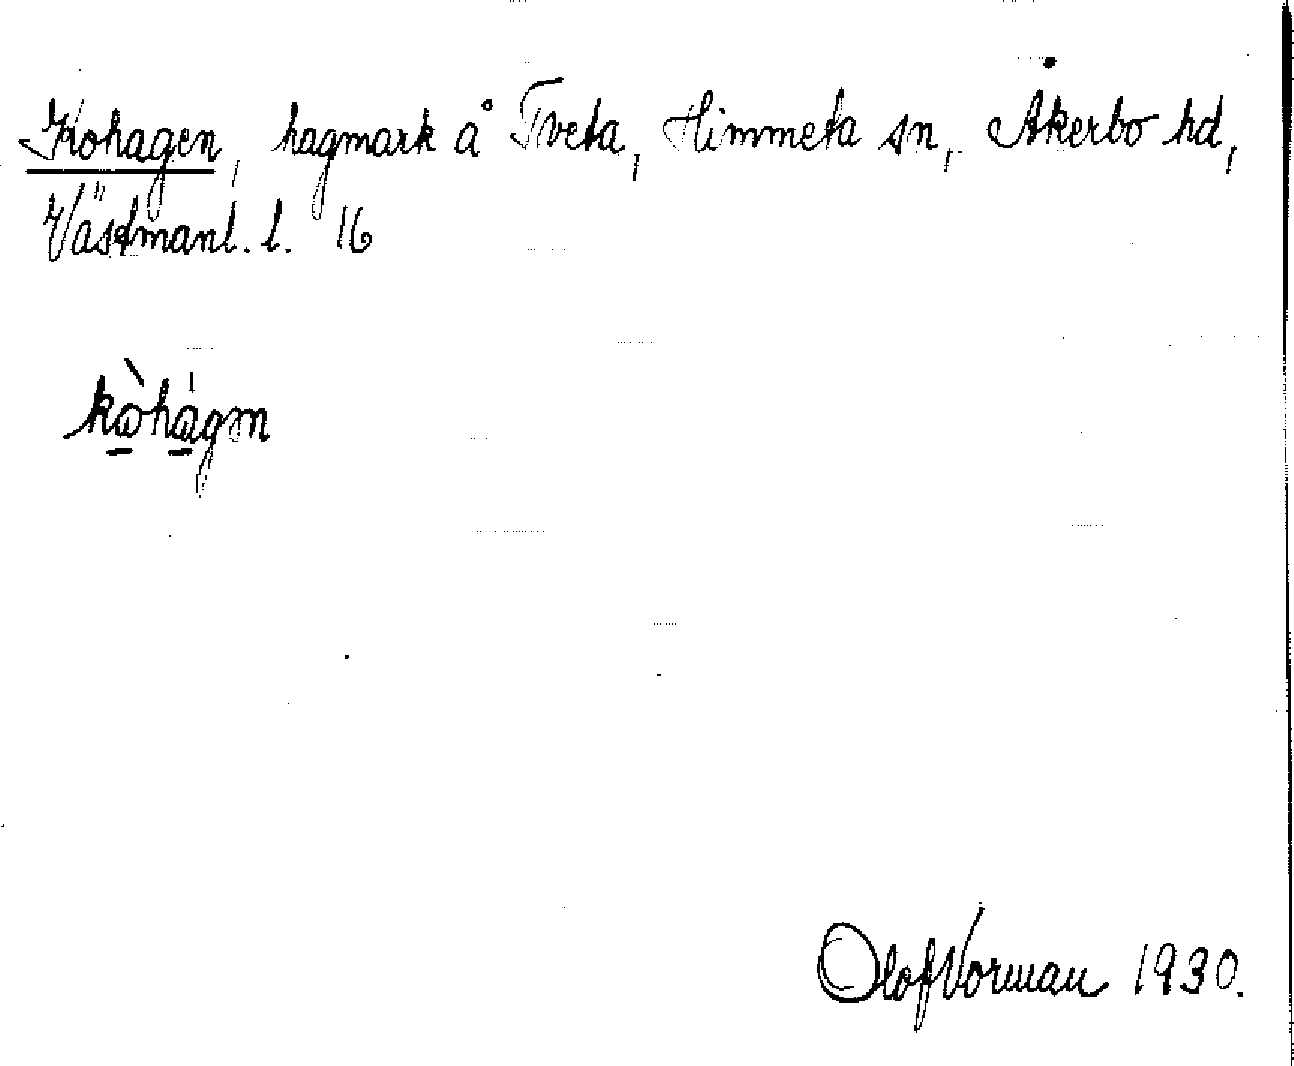 Kohagen, hagmark å Tveta, Himmeta sn, Åkerbo hd,
Västmanl. l. 16
kò̱há̱gın
Olof Norman 1930.